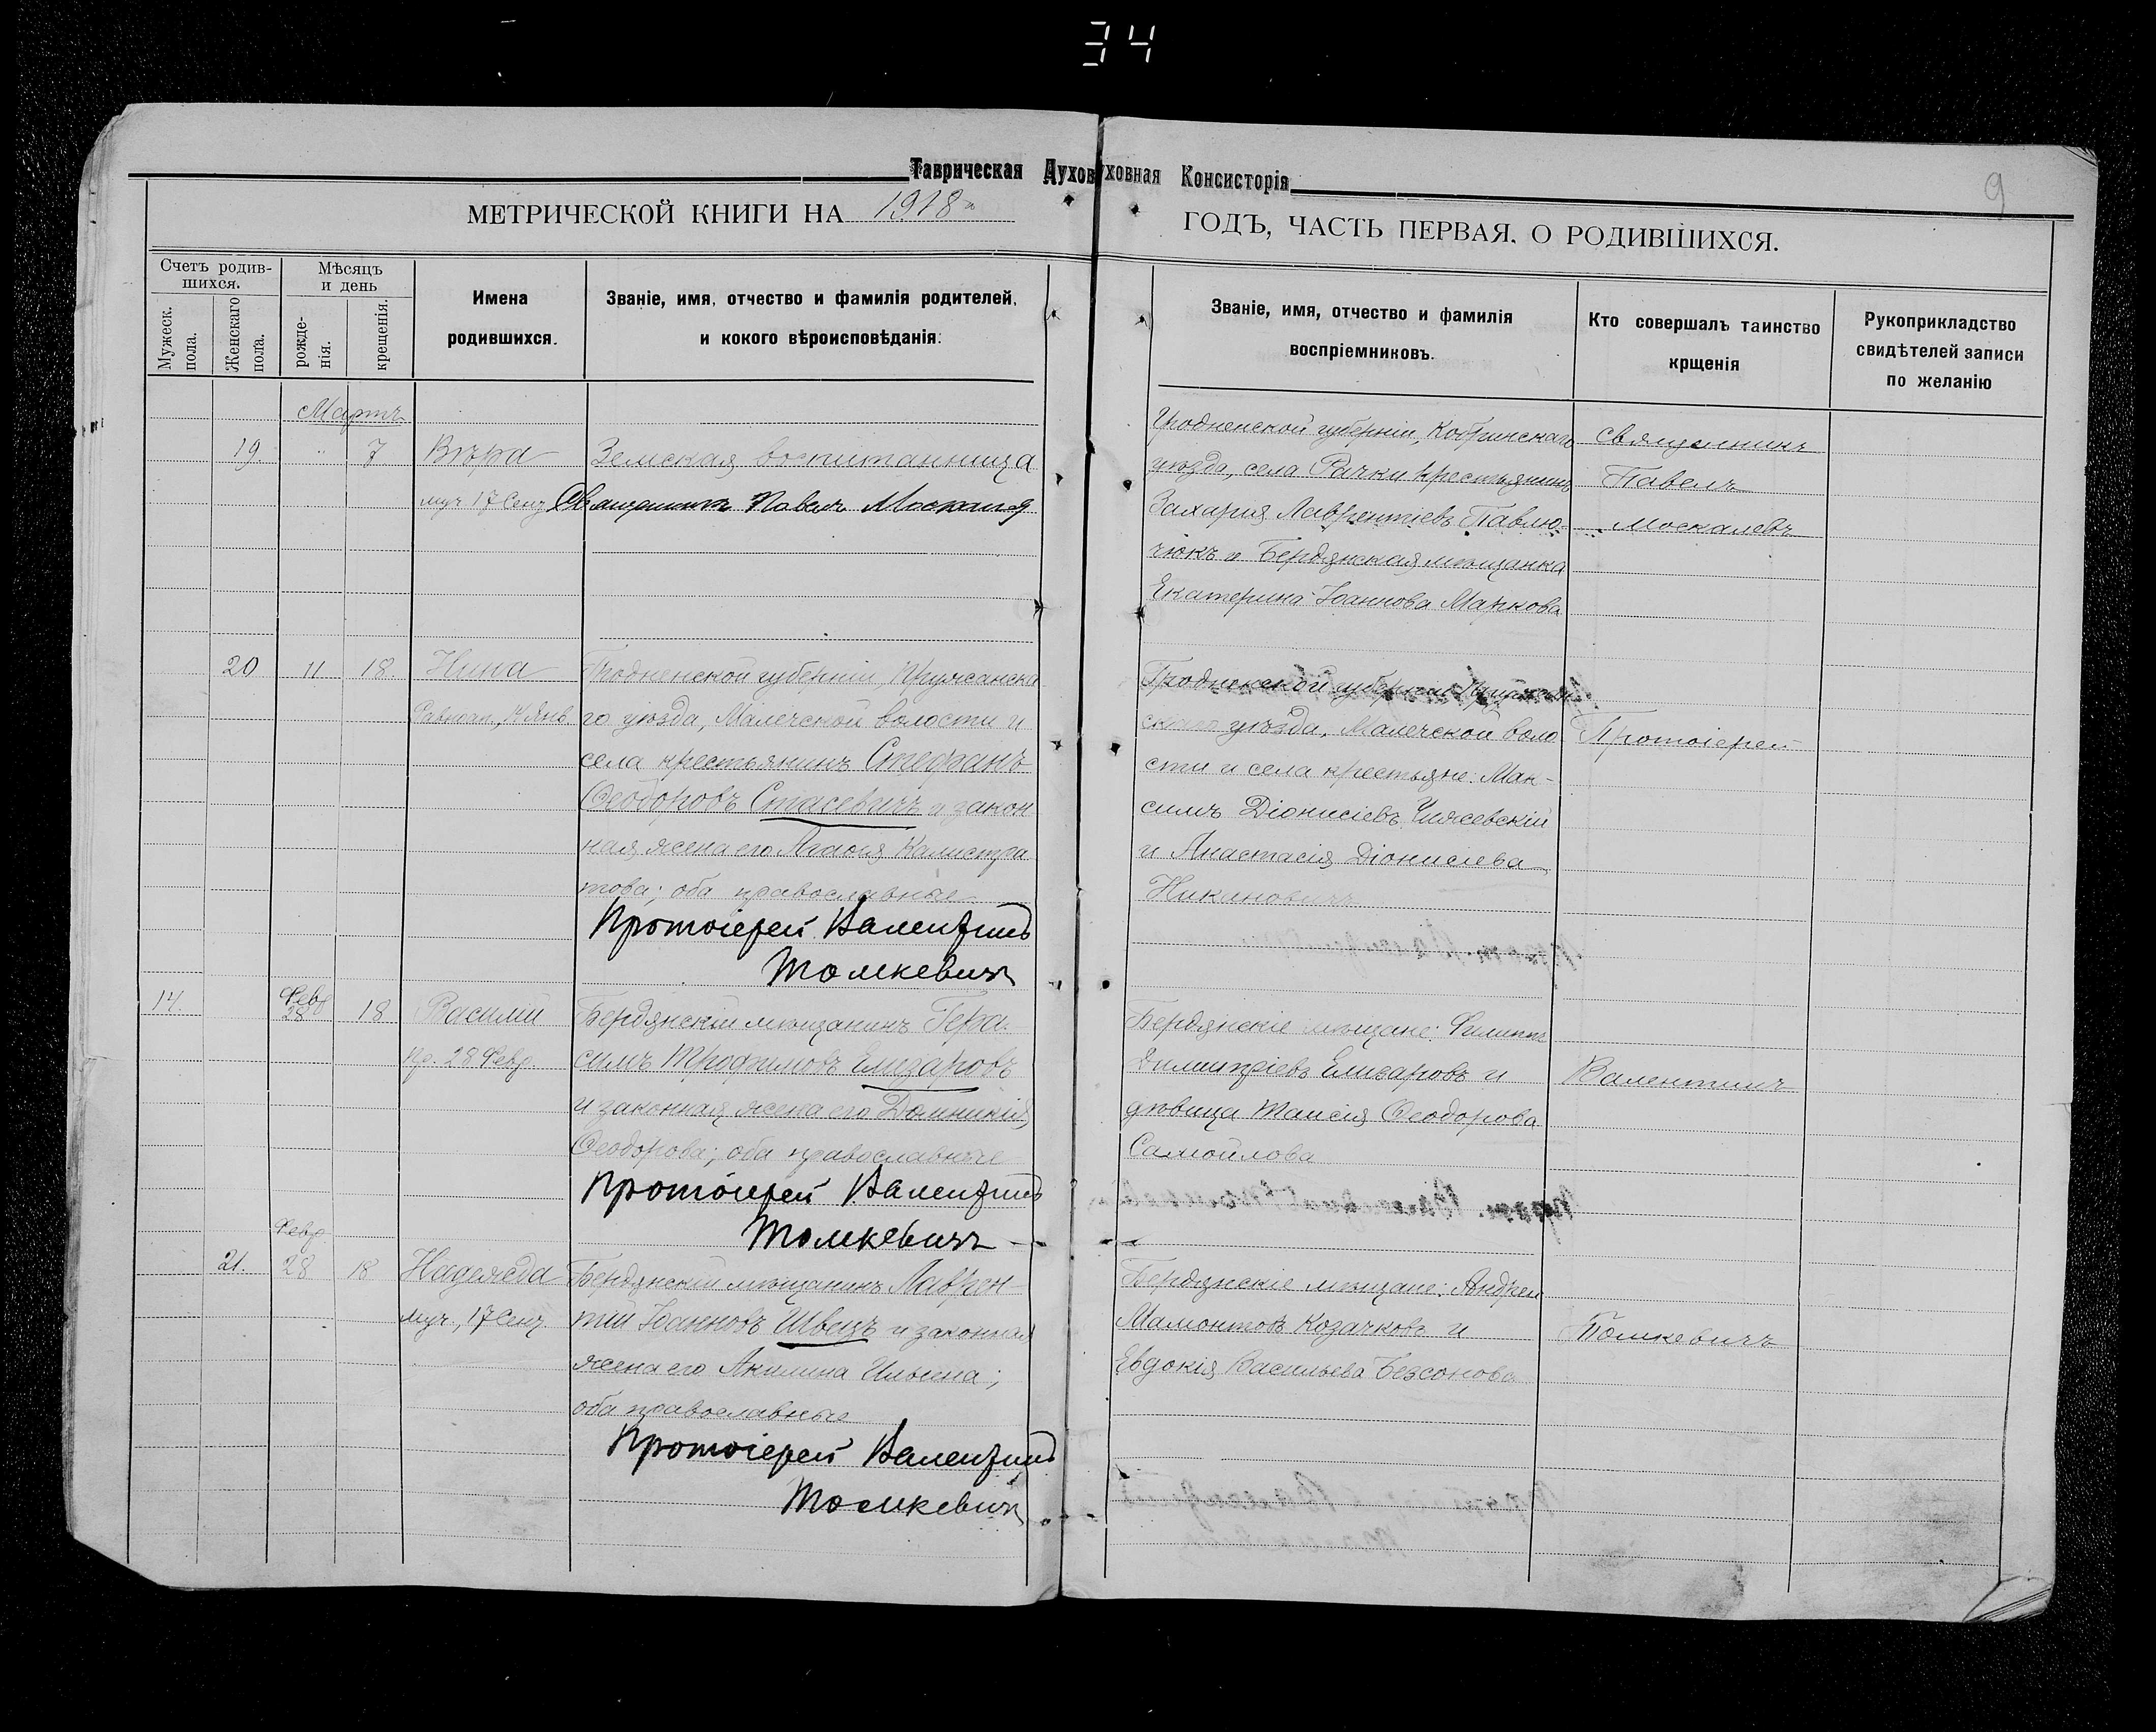 34
Таврическая Духовная Консисторія
9
МЕТРИЧЕСКОЙ КНИГИ НА 1918
ГОДЪ, ЧАСТЬ ПЕРВАЯ, О РОДИВШИХСЯ.
Счетъ родив-
шихся.
Мужеск.
пола.
Женскаго
пола.
Мѣсяцъ
и день
рожде-
нія.
крещенія.
Имена
родившихся.
Званіе, имя, отчество и фамилія родителей,
и кокого вѣроисповѣданія:
Званіе, имя, отчество и фамилія
воспріемниковъ.
Кто совершалъ таинство
крщенія
Рукоприкладство
свидѣтелей записи
по желанію
Мартъ
19. 7 Вѣра
муч 17 Сен
Земская воспитанница
Священникъ Павелъ
Гродненской губерніи, Кобринскаго
уѣзда, села Рачки крестьянинъ
Захарія Лаврентіевъ Павлю-
чюкъ и Бердянская мѣщанка
Екатерина Іоаннова Маркова
священникъ
Павелъ
Москалевъ
20 11 18. Нина
Равноап., 14 Янв.
Гродненской губерніи, Пружанска
го уѣзда, Малечской волости и
села крестьянинъ Стефанъ
Ѳеодоровъ Стасевичъ и закон
ная жена его Агаѳія Калистра
това; оба православные
Протоіерей Валентинъ
Томкевичъ
Гродненской губерніи
скаго уѣзда, Малечской воло
сти и села крестьяне: Мак-
симъ Діонисіевъ
и Анастасія Діонисіева
Никановичъ
Протоіерей
14. Февр 28 18 Василій
Пр. 28 Февр.
Бердянскій мѣщанинъ Гера-
симъ Трофимовъ Елизаровъ
и законная жена его Домникія
Ѳеодорова; оба православные
Протоіерей Валентинъ
Томкевичъ
Бердянскіе мѣщане: Филиппъ
Димитріевъ Елизаровъ и
дѣвица Таисія Ѳеодорова
Самойлова
Валентинъ
Февр.
21. 28 18 Надежда
муч., 17 Сен.
Бердянскій мѣщанинъ Лаврен-
тій Іоанновъ Швецъ и законная
жена его Акилина Ильина;
оба православные
Протоіерей Валентинъ
Томкевичъ
Бердянскіе мѣщане: Андрей
Мамонтовъ Козачковъ и
Евдокія Васильева Безсонова
Томкевичъ